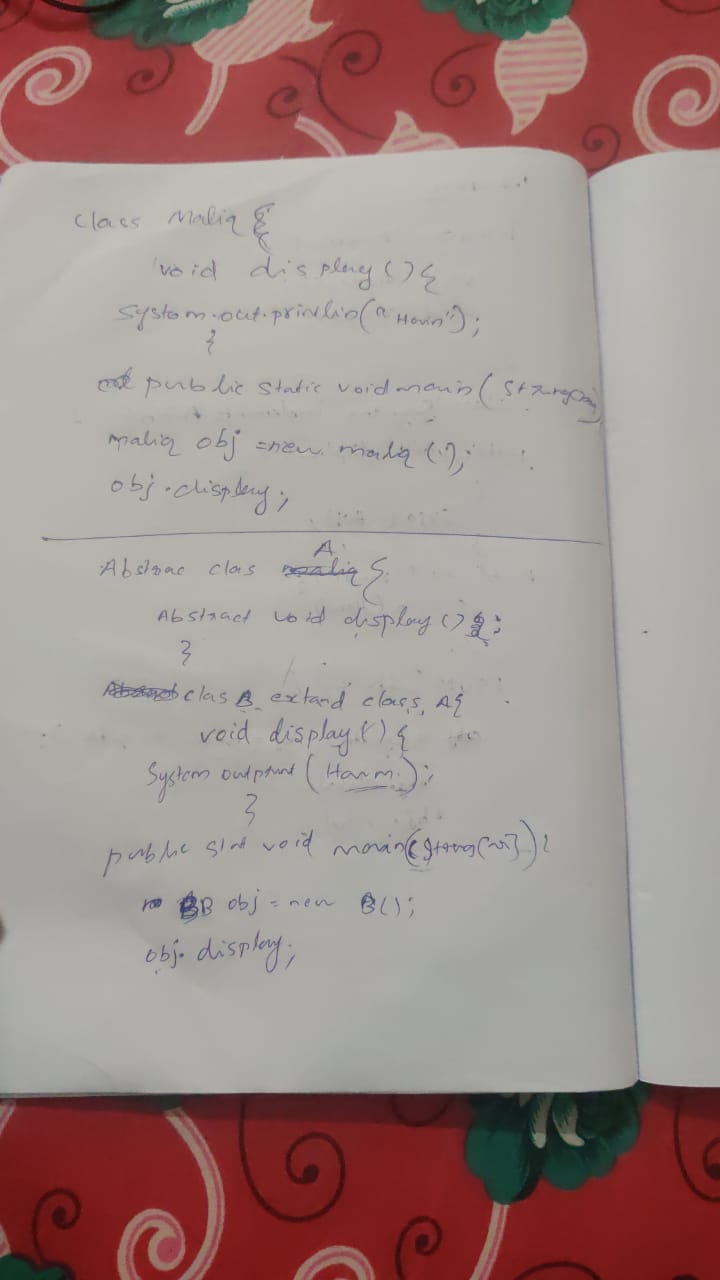 class Maliq {
void display () {
System.out.println("Harin");
}
public static void main (String
maliq obj = new maliq ();
obj.display;
A
Abstrac clas {
Abstract void display () ;
}
clas B extand class A{
void display () {
System out print (Harm);
}
public stat void main (String
B obj = new B();
obj. display;